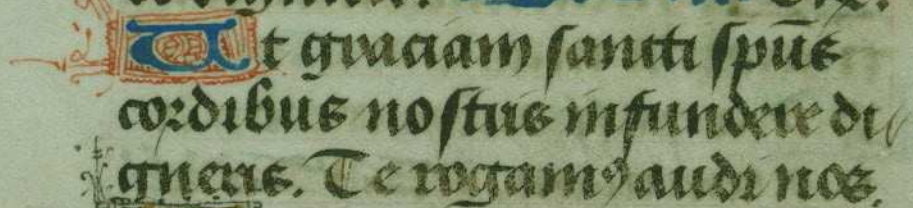 Ut graciam sancti spūs
cordibus nostris infundere di
gneris. Te rogamꝰ audi nos.